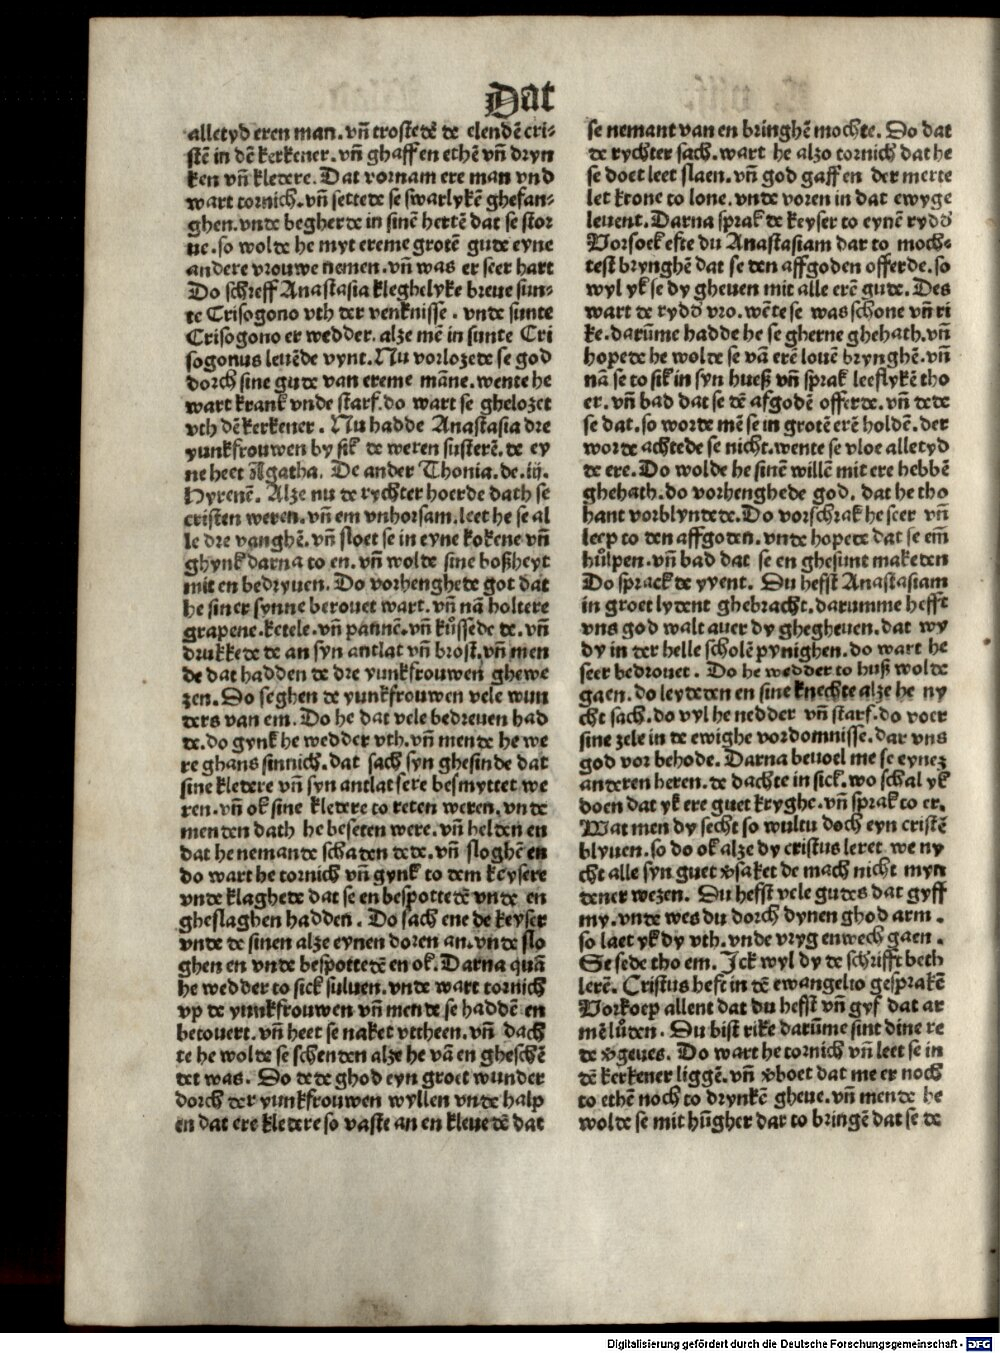 Dat
alletyd eren man. vñ trostedē de elendē cri⸗
stē in dē kerkener. vñ ghaff en ethē vñ dryn
ken vñ kledere. Dat vornam ere man vnd
wart tornich. vñ settede se swarlykē ghefan⸗
ghen. vnde begherde in sinē hertē dat se stor
ue. so wolde he myt ereme grotē gude eyne
andere vrouwe nemen. vñ was er seer hart
Do schreff Anastasia kleghelyke breue sun⸗
te Crisogono vth der venknisse. vnde sunte
Crisogono er wedder. alze mē in sunte Cri
sogonus leuēde vynt. Nu vorlozede se god
dorch sine gude van ereme māne. wente he
wart krank vnde starf. do wart se ghelozet
vth dē kerkener. Nu hadde Anastasia dre
yunkfrouwen by sik de weren susterē. de ey
ne heet Agatha. De ander Thonia. de .iij.
Hyrenē. Alze nu de rychter hoerde dath se
cristen weren. vñ em vnhorsam. leet he se al
le dre vanghē. vñ sloet se in eyne kokene vñ
ghynk darna to en. vñ wolde sine boßheyt
mit en bedryuen. Do vorhenghede got dat
he siner synne berouet wart. vñ nā holtere
grapene. ketele. vñ pannē. vñ kůssede de. vñ
drukkede de an syn antlat vñ brost. vñ men
de dat hadden de dre yunkfrouwen ghewe
zen. Do seghen de yunkfrouwen vele wun
ders van em. Do he dat vele bedreuen had
de. do gynk he wedder vth. vñ mende he we
re ghans sinnich. dat sach syn ghesinde dat
sine kledere vñ syn antlat sere besmyttet we
ren. vñ ok sine kledere to reten weren. vnde
menden dath he beseten were. vñ helden en
dat he nemande schaden dede. vñ sloghē en
do wart he tornich vñ gynk to dem keysere
vnde klaghede dat se en bespottedē vnde en
gheslaghen hadden. Do sach ene de keyser
vnde de sinen alze eynen doren an. vnde slo
ghen en vnde bespottedē en ok. Darna quā
he wedder to sick suluen. vnde wart tornich
vp de yunkfrouwen vñ mende se haddē en
betouert. vñ heet se naket vttheen. vñ dach
te he wolde se schenden alze he vā en gheschē
det was. Do dede ghod eyn groet wunder
dorch der yunkfrouwen wyllen vnde halp
en dat ere kledere so vaste an en kleuedē dat
se nemant van en bringhē mochte. Do dat
de rychter sach. wart he alzo tornich dat he
se doet leet slaen. vñ god gaff en der merte
let krone to lone. vnde voren in dat ewyge
leuent. Darna sprak de keyser to eynē rydď
Vorsoek efte du Anastasiam dar to moch⸗
test brynghē dat se den affgoden offerde. so
wyl yk se dy gheuen mit alle erē gude. Des
wart de rydď vro. wēte se was schone vñ ri
ke. darūme hadde he se gherne ghehath. vñ
hopede he wolde se vā erē louē brynghē. vñ
nā se to sik in syn hueß vñ sprak leeflykē tho
er. vñ bad dat se dē afgodē offerde. vñ dede
se dat. so worde mē se in grotē erē holdē. der
worde achtede se nicht. wente se vloe alletyd
de ere. Do wolde he sinē willē mit ere hebbē
ghehath. do vorhenghede god. dat he tho
hant vorblyndede. Do vorschrak he seer vñ
leep to den affgoden. vnde hopede dat se em̄
hůlpen. vñ bad dat se en ghesunt makeden
Do sprack de vyent. Du hefst Anastasiam
in groet lydent ghebracht. darumme hefft
vns god walt auer dy ghegheuen. dat wy
dy in der helle scholē pynighen. do wart he
seer bedrouet. Do he wedder to huß wolde
gaen. do leydeden en sine knechte alze he ny
cht sach. do vyl he nedder vñ starf. do voer
sine zele in de ewighe vordomnisse. dar vns
god vor behode. Darna beuoel me se eynez
anderen heren. de dachte in sick. wo schal yk
doen dat yk ere guet kryghe. vñ sprak to er.
Wat men dy secht so wultu doch eyn cristē
blyuen. so do ok alze dy cristus leret. we ny
cht alle syn guet v̾saket de mach nicht myn
dener wezen. Du hefst vele gudes dat gyff
my. vnde wes du dorch dynen ghod arm.
so laet yk dy vth. vnde vryg enwech gaen.
Se sede tho em. Ick wyl dy de schrifft beth
lerē. Cristus heft in dē ewangelio gesprakē
Vorkoep allent dat du hefst vñ gyf dat ar
mē lůden. Du bist rike darūme sint dine re
de v̾geues. Do wart he tornich vñ leet se in
dē kerkener liggē. vñ v̾boet dat me er noch
to ethē noch to drynkē gheue. vñ mende he
wolde se mit hūgher dar to bringē dat se de
Digitalisierung gefördert durch die Deutsche Forschungsgemeinschaft - DFG